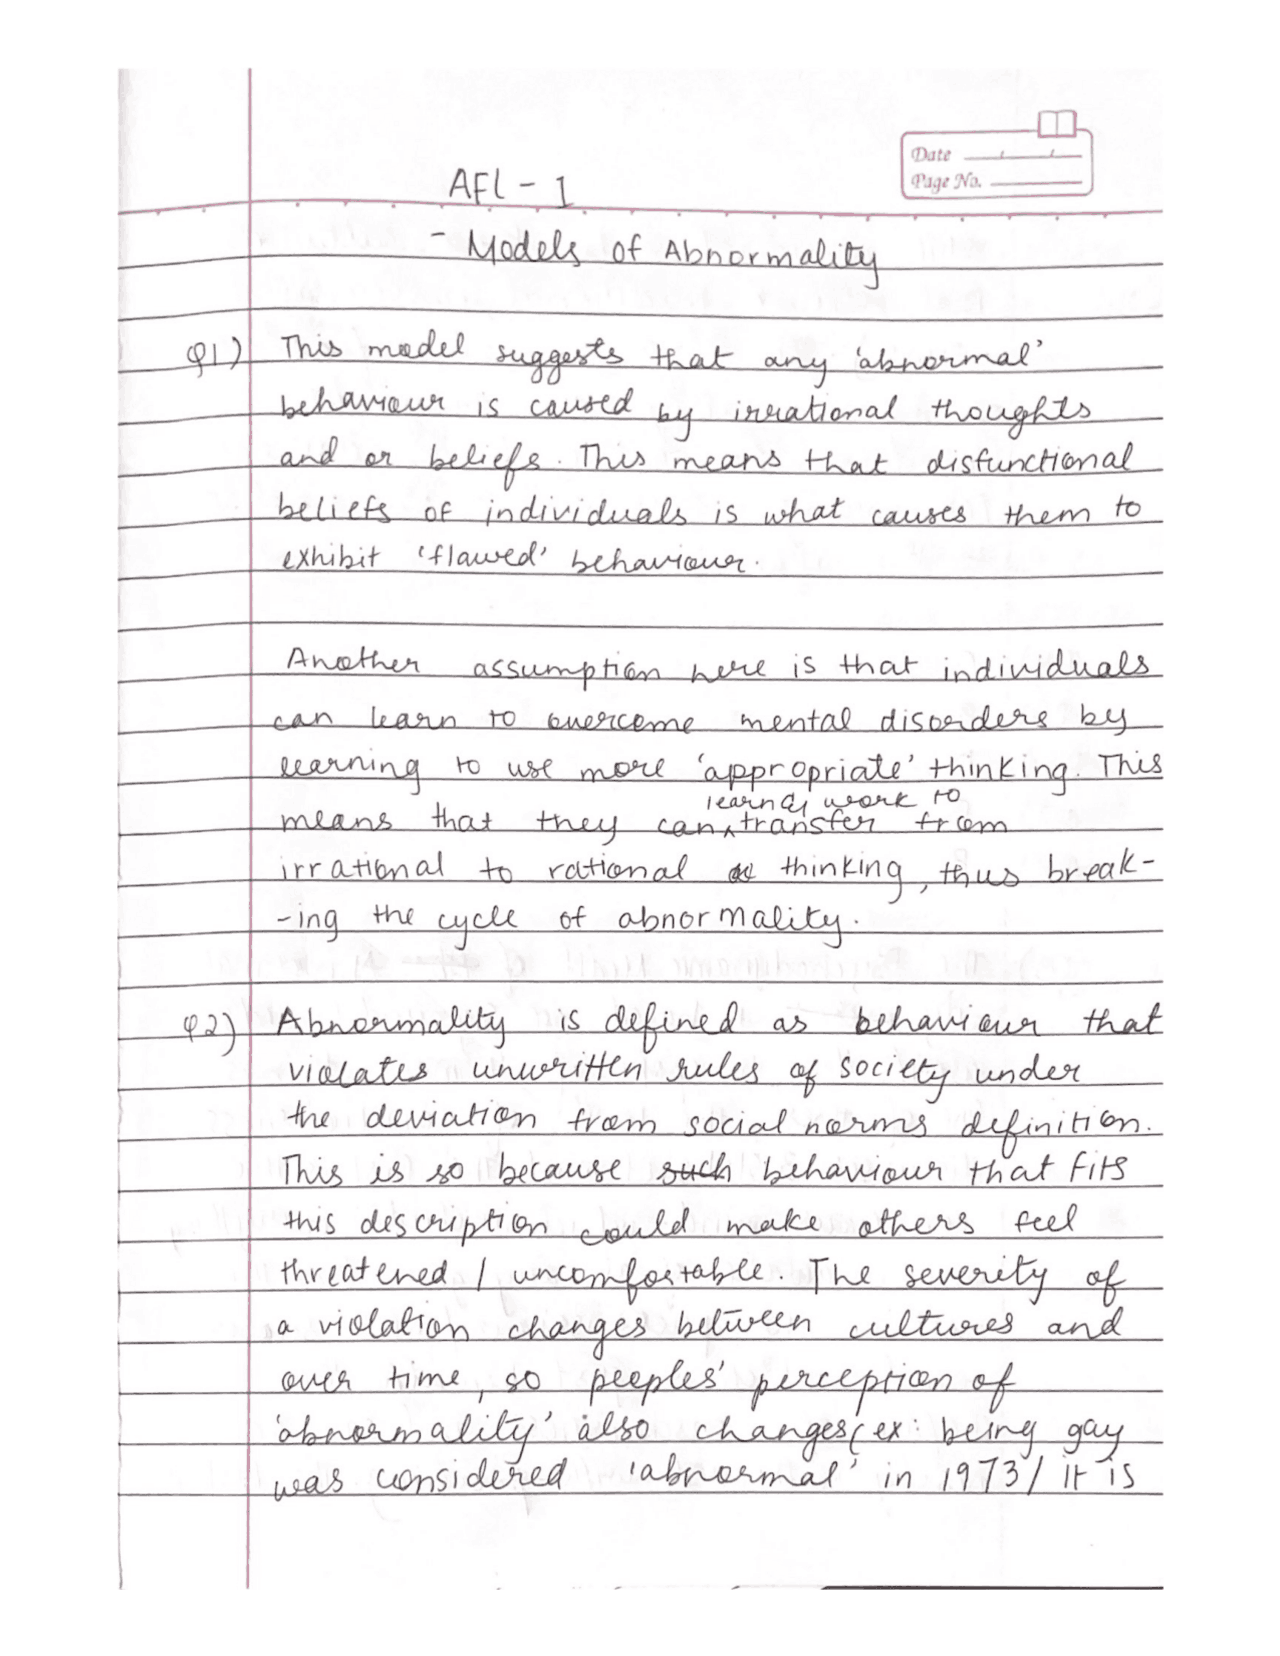 Date
Page No.
AFL - 1
- Models of Abnormality
Q1) This model suggests that any 'abnormal'
behaviour is caused by irrational thoughts
and or beliefs. This means that disfunctional
beliefs of individuals is what causes them to
exhibit 'flawed' behaviour.
Another assumption here is that individuals
can learn to overcome mental disorders by
learning to use more 'appropriate' thinking. This
learn & work to
means that they can ^ transfer from
irrational to rational thinking, thus break-
-ing the cycle of abnormality.
Q2) Abnormality is defined as behaviour that
violates unwritten rules of society under
the deviation from social norms definition.
This is so because such behaviour that fits
this description could make others feel
threatened / uncomfortable. The severity of
a violation changes between cultures and
over time, so peoples' perception of
'abnormality' also changes (ex: being gay
was considered 'abnormal' in 1973 / it is